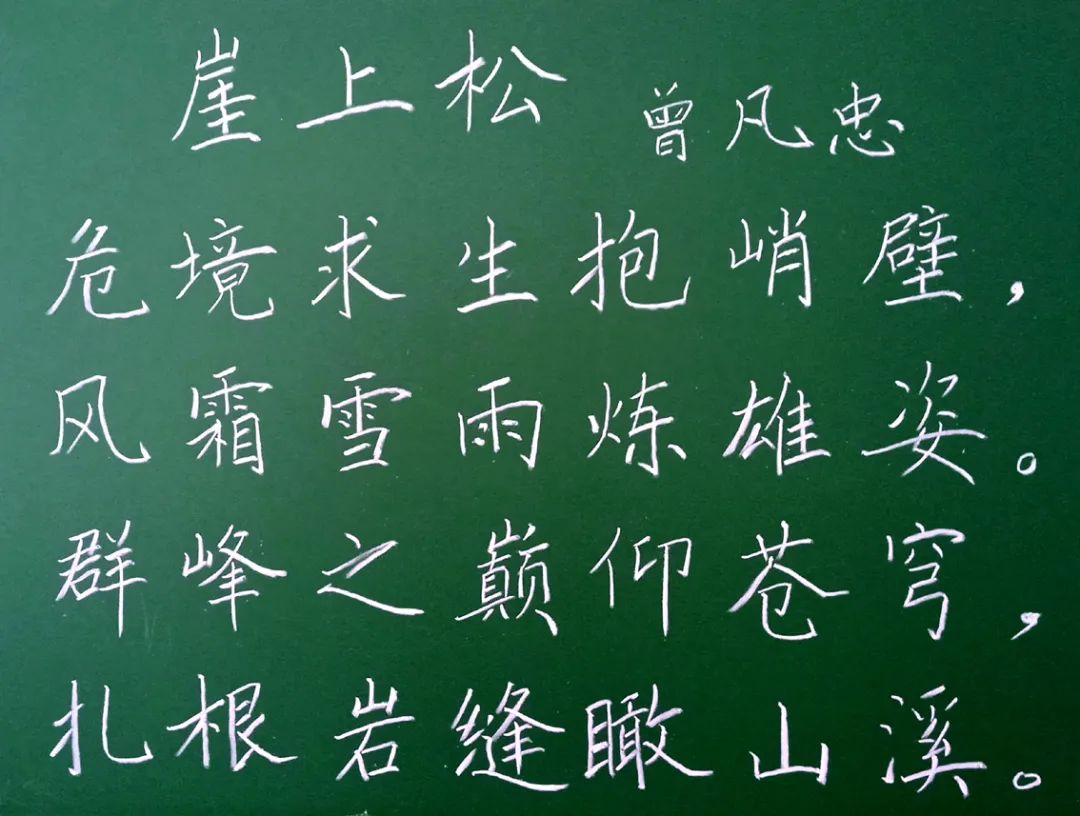 崖上松 曾凡忠
危境求生抱峭壁，
风霜雪雨炼雄姿。
群峰之巅仰苍穹，
扎根岩缝瞰山溪。